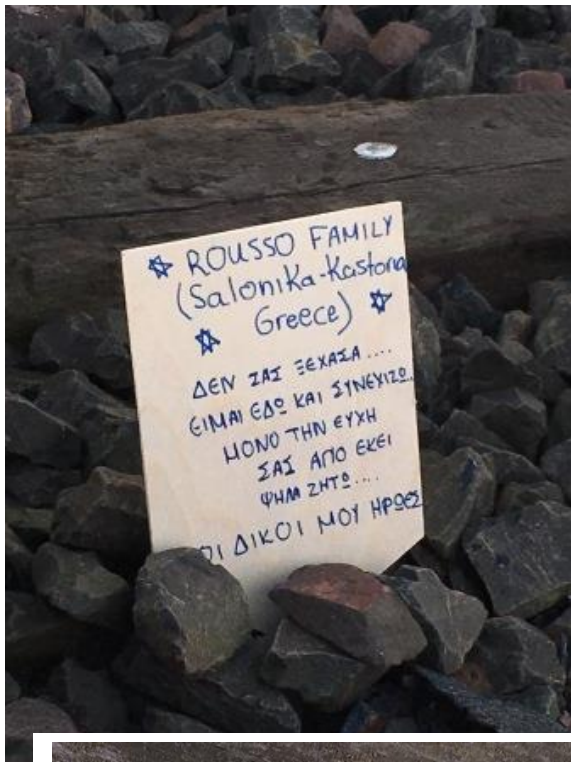 ROUSSO FAMILY
(Salonika-Kastoria
Greece)
ΔΕΝ ΣΑΣ ΞΕΧΑΣΑ....
ΕΙΜΑΙ ΕΔΩ ΚΑΙ ΣΥΝΕΧΙΖΩ..
ΜΟΝΟ ΤΗΝ ΕΥΧΗ
ΣΑΣ ΑΠΟ ΕΚΕΙ
ΨΗΛΑ ΖΗΤΩ....
ΟΙ ΔΙΚΟΙ ΜΟΥ ΗΡΩΕΣ